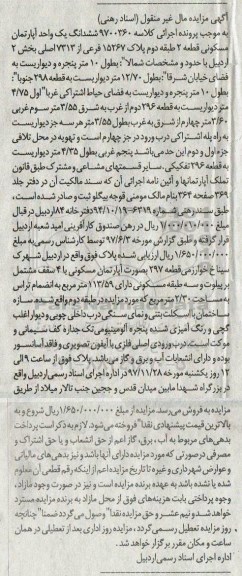 آگهی مزایده مال غیر منقول (اسناد رهنی)
به موجب پرونده اجرائی کلاسه ۹۷۰۰۲۶۰ ششدانگ یک واحد آپارتمان
مسکونی قطعه ۲ طبقه دوم پلاک ۱۵۲۶۷ فرعی از ۷۳۱۳ اصلی بخش ۲
اردبیل با حدود و مشخصات شمالا": بطول ۱۰ متر پنجره و دیواریست به
فضای خیابان شرقا": بطول ۱۲/۷۰ متر دیواریست به قطعه ۲۹۸ جنوبا":
بطول ۱۰ متر پنجره و دیواریست به فضای حیاط اشتراکی غربا" اول ۴/۷۵
متر دیواریست به قطعه ۲۹۶ دوم از غرب به شرق ۳/۵۵ متر سوم غربی
۳/۶۰ متر چهارم از شرق به غرب بطول ۳/۵۵ متر هر سه جزء دیواریست
به راه پله اشتراکی درب ورود در جز چهارم است و تهویه در محل تلاقی
جزء اول و دوم این حد می باشد پنجم غربی بطول ۴/۳۵ متر دیواریست
به قطعه ۲۹۶ تفکیکی. سایر قسمتهای مشاعی و مشترک طبق قانون
تملک آپارتمانها و آئین نامه اجرائی آن که سند مالکیت آن در دفتر جلد
۳۶۹ صفحه ۳۶۴ بنام مالک مومنی قوجه بیگلو ثبت و صادر شده است،
طبق سند رهنی شماره ۶۳۱۹-۹۴/۱۰/۱۹ دفترخانه ۸۴ اردبیل در قبال
مبلغ ریال در رهن صندوق کارآفرینی امید شعبه اردبیل
قرار گرفته و طبق گزارش مورخه ۹۷/۶/۳ توسط کارشناس رسمی به مبلغ
۱/۶۵۰/۰۰۰/۰۰۰ ریال ارزیابی شده پلاک فوق واقع در اردبیل شهرک
سینا خوارزمی قطعه ۲۹۷ بصورت آپارتمان مسکونی با ۴ سقف مشتمل
بر پیلوت و سه طبقه مسکونی دارای ۱۱۳/۵۹ متر مربع به انضمام تراس
به مساحت ۲/۳۰ مترمربع که مورد مزایده در طبقه دوم واقع شده. سازه
ساختمان با اسکلت بتنی و نمای سنگی درب داخلی چوبی و دیوار اغلب
گچی و رنگ آمیزی شده پنجره آلومینیومی تک جداره کف سیمانی و
موکت است. درب ورودی اصلی فلزی با آیفون تصویری و فاقد آسانسور
بوده و دارای انشعابات آب و برق و گاز می باشد. پلاک فوق از ساعت ۹ الی
۱۲ روز یکشنبه مورخه ۹۷/۱۱/۲۸ در اداره اجرای اسناد رسمی اردبیل واقع
در بزرگراه شهدا مابین میدان قدس و ججین جنب تالار میلاد از طریق
مزایده به فروش می رسد. مزایده از مبلغ ۱/۶۵۰/۰۰۰/۰۰۰ ریال شروع و به
بالاترین قیمت پیشنهادی نقدا" فروخته می شود. لازم به ذکر است پرداخت
بدهی های مربوط به آب، برق، گاز اعم از حق انشعاب و یا حق اشتراک و
مصرف درصورتی که مورد مزایده دارای آنها باشد و نیز بدهی های مالیاتی
و عوارض شهرداری و غیره تا تاریخ مزایده اعم از اینکه رقم قطعی آن معلوم
شده یا نشده باشد به عهده برنده مزایده است و نیز در صورت وجود مازاد،
وجوه پرداختی بابت هزینه های فوق از محل مازاد به برنده مزایده مسترد
خواهد شد و نیم عشر و حق مزایده نقدا" وصول می گردد ضمنا" چنانچه
روز مزایده تعطیل رسمی گردد، مزایده روز اداری بعد از تعطیلی در همان
ساعت و مکان مقرر برگزار خواهد شد.
اداره اجرای اسناد رسمی اردبیل